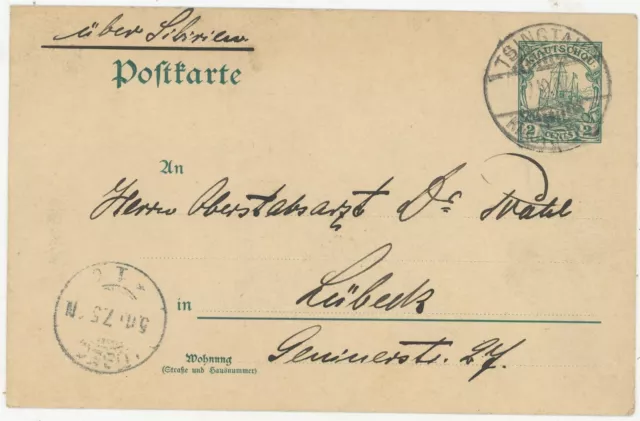 über Sibirien
Postkarte
TSINGTAU
KIAUTSCHOU
2 CENTS 2
An
Herrn Oberstabsarzt Dr. Wahl
in Lübeck
Wohnung
(Straße und Hausnummer)
Geninerstr. 27.